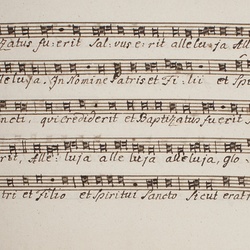 zatus fu: erit Sal: vus e: rit alle lu: ja Al
lelu ja. In Nomine Patris et Fi: lii et Spi
ncti, qui crediderit et Baptizatus fu erit S
rit, Alle: luja alle luja alleluja, glo
tri et Filio et Spiritui Sancto Sicut erat